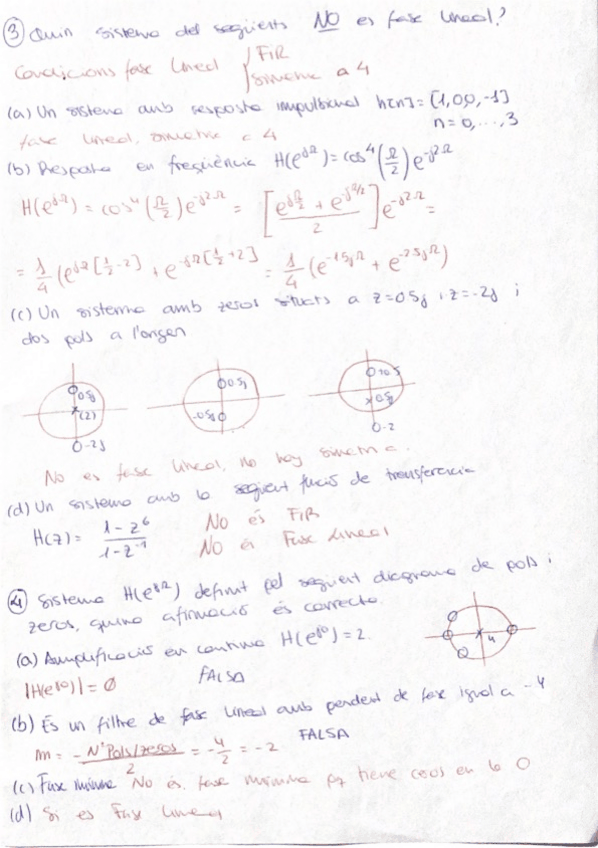 ③ Quin sistema del següents NO es fase lineal?
Condicions fase lineal { FIR
simetria a 4
(a) Un sistema amb resposta impulsional h[n] = [1,0,0,-1]
n=0,...,3
fase lineal, simetria a 4
(b) Resposta en freqüència H(e^jΩ) = cos⁴(Ω/2) e^-j2Ω
H(e^jΩ) = cos⁴(Ω/2) e^-j2Ω = [(e^jΩ/2 + e^jΩ/2)/2] e^-j2Ω =
= 1/4 (e^jΩ[1/2-2] + e^-jΩ[1/2+2] = 1/4 (e^-1'5jΩ + e^-2'5jΩ)
(c) Un sistema amb zeros situats a z=0'5j i z=-2j i
dos pols a l'origen
0'5j 0'5j +0'5
(2) -0'5j 0'5j
-2j -2
No es fase lineal, no hay simetria.
(d) Un sistema amb la següent funció de transferència
H(z) = (1-z^6)/(1-z^-1) No és FIR
No és Fase Lineal
④ Sistema H(e^jΩ) definit pel següent diagrama de pols i
zeros, quina afirmació és correcta.
4
(a) Amplificació en continua H(e^j0) = 2.
|H(e^j0)| = 0 FALSA
(b) És un filtre de fase lineal amb pendent de fase igual a -4
m = - Nº Pols/zeros / 2 = -4/2 = -2 FALSA
(c) Fase mínima No és fase mínima pq tiene ceros en la O
(d) Si es Fase Lineal